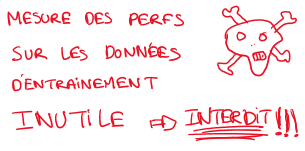 MESURE DES PERFS
SUR LES DONNÉES
D'ENTRAINEMENT
INUTILE => INTERDIT!!!